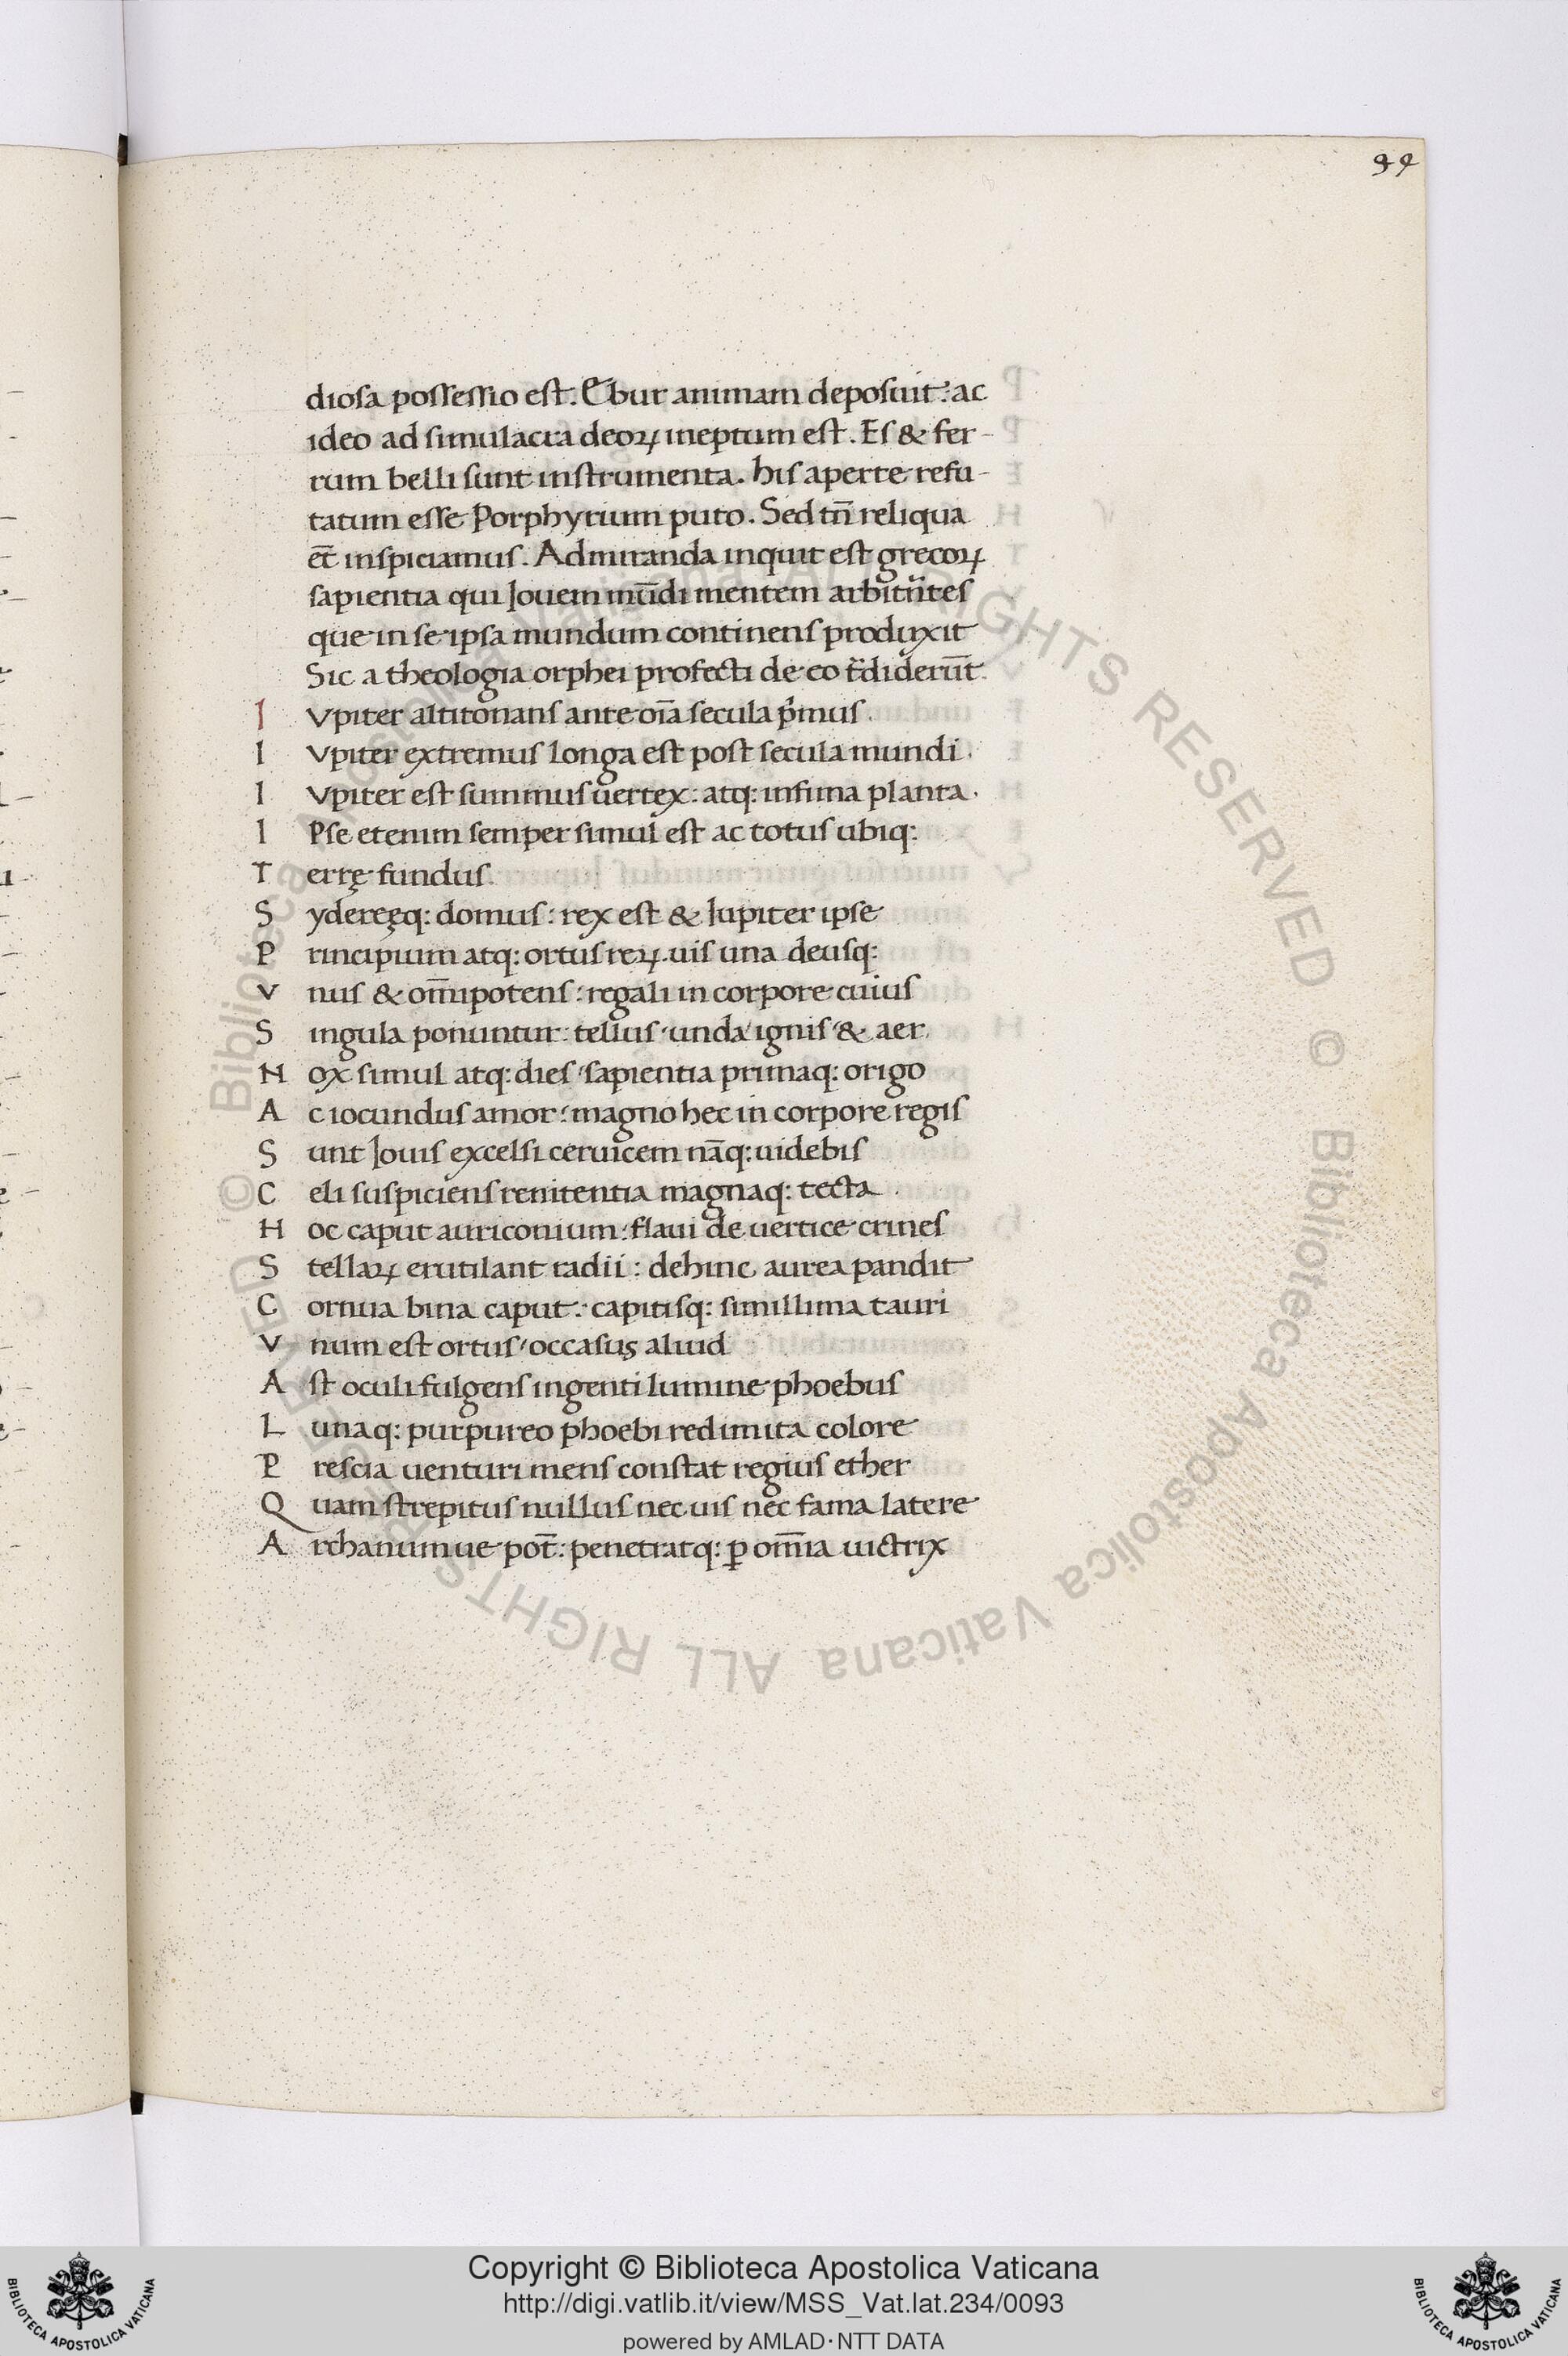 94
diosa possessio est. Ebur animam deposuit: ac
ideo ad simulacra deoꝝ ineptum est. Es & fer-
rum belli sunt instrumenta. his aperte refu-
tatum esse Porphyrium puto. Sed tn̄ reliqua
et̄ inspiciamus. Admiranda inquit est grecoꝝ
sapientia qui Iouem mūdi mentem
que in se ipsa mundum continens produxit
Sic a theologia orphei profecti de eo
I Vpiter altitonans ante oīa secula pͥmus.
I Vpiter extremus longa est post secula mundi.
I Vpiter est summus uertex: atq: infima planta.
I Pse etenim semper simul est ac totus ubiq:
T errę fundus.
S ydereęq: domus: rex est & Iupiter ipse
P rincipium atq: ortus reꝝ. uis una deusq:
V nus & om̄ipotens: regali in corpore cuius
S ingula ponuntur: tellus / unda / ignis / & aer.
N ox simul atq: dies / sapientia primaq: origo
A c iocundus amor: magno hec in corpore regis
S unt Iouis excelsi ceruicem nāq: uidebis
C eli suspiciens renitentia magnaq: tecta.
H oc caput auriconium: flaui de uertice crines
S tellaꝝ erutilant radii: dehinc aurea pandit
C ornua bina caput: capitisq: simillima tauri
V num est ortus / occasus aliud
A st oculi fulgens ingenti lumine phoebus
L unaq: purpureo phoebi redimita colore
P rescia uenturi mens constat regius ether
Q uam strepitus nullus nec uis nec fama latere
A rchanumue pot̄: penetratq: ꝑ om̄ia uictrix
© Biblioteca Apostolica Vaticana ALL RIGHTS RESERVED © Biblioteca Apostolica Vaticana ALL RIGHTS RESERVED
Copyright © Biblioteca Apostolica Vaticana
http://digi.vatlib.it/view/MSS_Vat.lat.234/0093
powered by AMLAD·NTT DATA
BIBLIOTECA APOSTOLICA VATICANA
BIBLIOTECA APOSTOLICA VATICANA